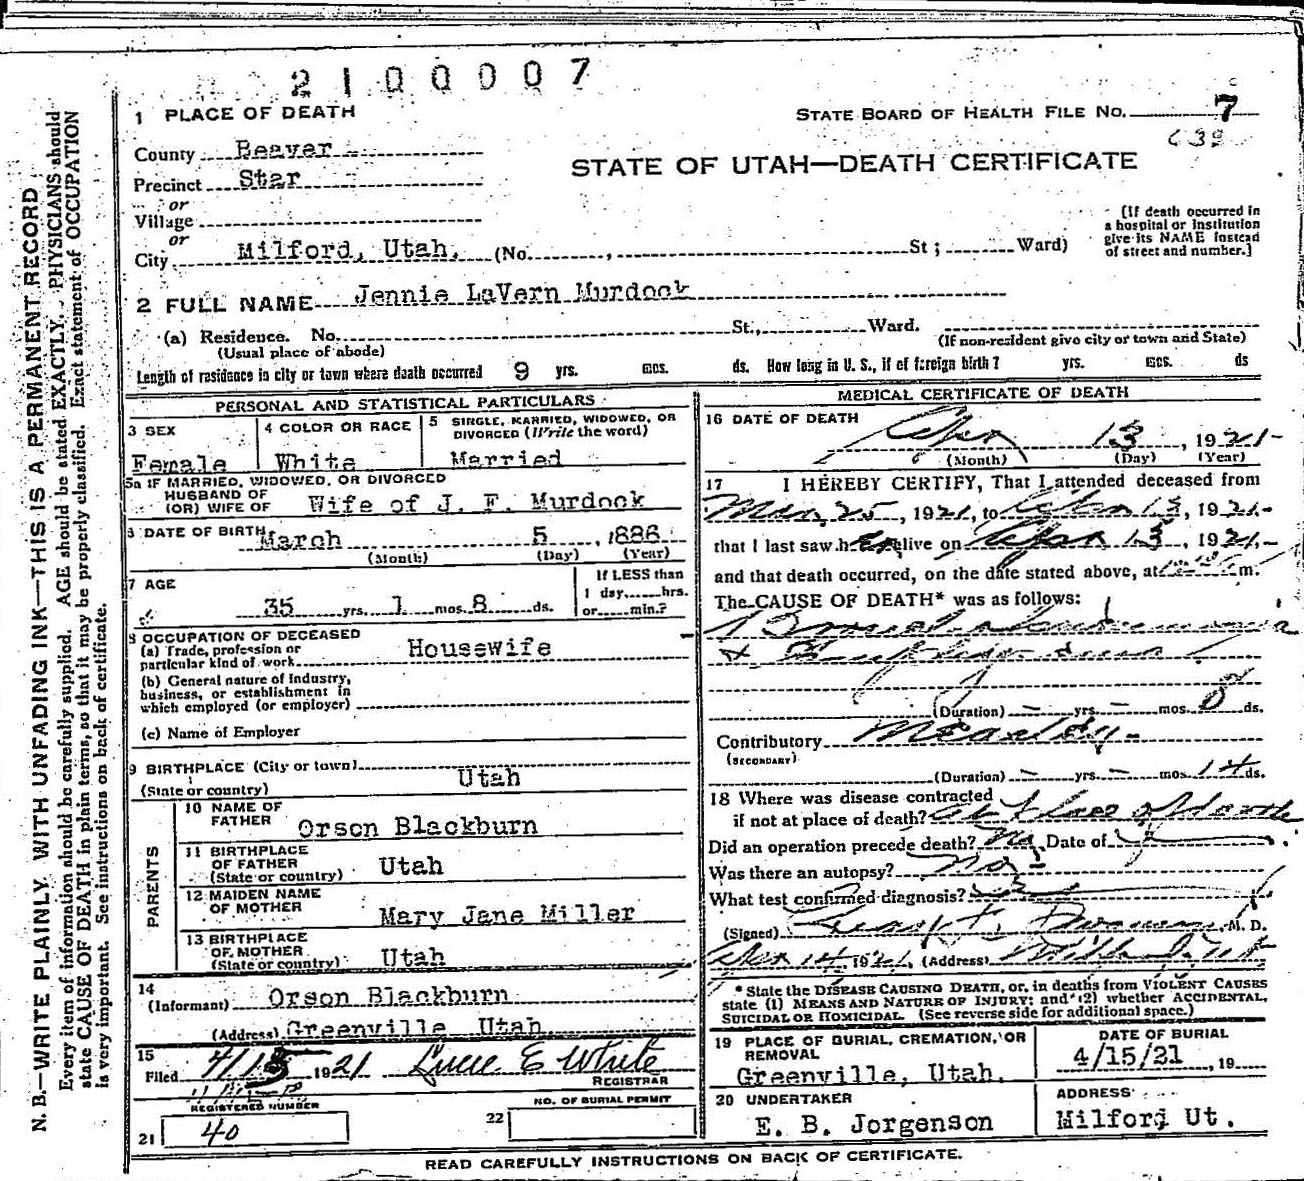 2100007
1 PLACE OF DEATH
STATE BOARD OF HEALTH FILE NO. 7
639
County Beaver
STATE OF UTAH—DEATH CERTIFICATE
Precinct Star
or
Village
or
City Milford, Utah. (No. , St; Ward)
[If death occurred in
a hospital or institution
give its NAME instead
of street and number.]
2 FULL NAME Jennie LaVern Murdock
(a) Residence. No. St., Ward.
(Usual place of abode) (If non-resident give city or town and State)
Length of residence in city or town where death occurred 9 yrs. mos. ds. How long in U. S., if of foreign birth? yrs. mos. ds
PERSONAL AND STATISTICAL PARTICULARS
3 SEX
Female
4 COLOR OR RACE
White
5 SINGLE, MARRIED, WIDOWED, OR
DIVORCED (Write the word)
Married
5a IF MARRIED, WIDOWED, OR DIVORCED
HUSBAND OF
(OR) WIFE OF Wife of J. F. Murdock
6 DATE OF BIRTH March 5, 1886
(Month) (Day) (Year)
7 AGE
35 yrs. 1 mos. 8 ds.
If LESS than
1 day......hrs.
or......min.?
8 OCCUPATION OF DECEASED
(a) Trade, profession or
particular kind of work Housewife
(b) General nature of Industry,
business, or establishment in
which employed (or employer)
(c) Name of Employer
9 BIRTHPLACE (City or town)
(State or country) Utah
PARENTS
10 NAME OF
FATHER Orson Blackburn
11 BIRTHPLACE
OF FATHER
(State or country) Utah
12 MAIDEN NAME
OF MOTHER Mary Jane Miller
13 BIRTHPLACE
OF MOTHER
(State or country) Utah
14
(Informant) Orson Blackburn
(Address) Greenville Utah
15
Filed 4/15 1921 Lucie E White
REGISTRAR
REGISTERED NUMBER
21 40
NO. OF BURIAL PERMIT
22
MEDICAL CERTIFICATE OF DEATH
16 DATE OF DEATH
Apr 13, 1921
(Month) (Day) (Year)
17 I HEREBY CERTIFY, That I attended deceased from
Mar 25, 1921, to Apr 13, 1921
that I last saw her alive on Apr 13, 1921,
and that death occurred, on the date stated above, at m.
The CAUSE OF DEATH* was as follows:
Broncho pneumonia
&
(Duration) — yrs. — mos. 8 ds.
Contributory Measles
(SECONDARY)
(Duration) — yrs. — mos. 14 ds.
18 Where was disease contracted
if not at place of death? At place of death
Did an operation precede death? No Date of
Was there an autopsy? No
What test confirmed diagnosis?
(Signed) M. D.
Apr 14, 1921, (Address) Milford, Ut
* State the DISEASE CAUSING DEATH, or, in deaths from VIOLENT CAUSES
state (1) MEANS AND NATURE OF INJURY; and (2) whether ACCIDENTAL,
SUICIDAL OR HOMICIDAL. (See reverse side for additional space.)
19 PLACE OF BURIAL, CREMATION, OR
REMOVAL
Greenville, Utah.
DATE OF BURIAL
4/15/21, 19
20 UNDERTAKER
E. B. Jorgenson
ADDRESS
Milford Ut.
READ CAREFULLY INSTRUCTIONS ON BACK OF CERTIFICATE.
N. B.—WRITE PLAINLY, WITH UNFADING INK—THIS IS A PERMANENT RECORD
Every item of information should be carefully supplied. AGE should be stated EXACTLY. PHYSICIANS should
state CAUSE OF DEATH in plain terms, so that it may be properly classified. Exact statement of OCCUPATION
is very important. See instructions on back of certificate.